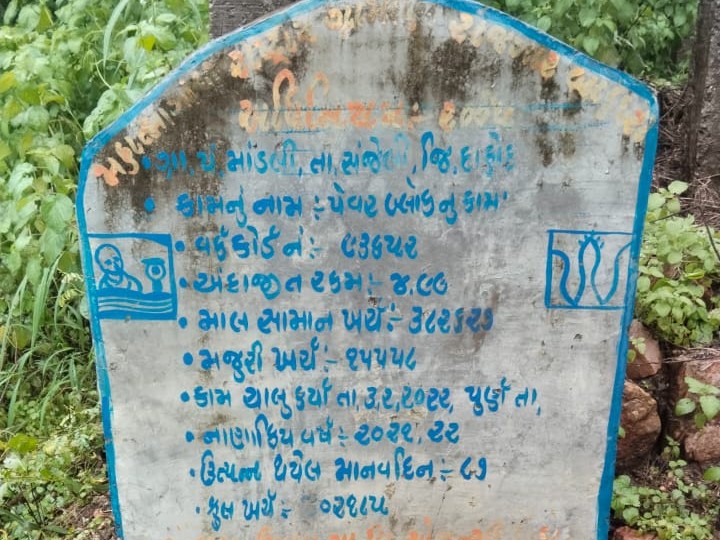 અધિનિયમ
• ગ્રા, પં, માંડલી, તા, સંજેલી, જિ, દાહોદ
• કામનું નામ :- પેવર બ્લોકનુ કામ
• વર્ક કોર્ડ નં :- ૯૩૬૫૨
• અંદાજીત રકમ :- ૪.૯૯
• માલ સામાન ખર્ચ :- ૩૮૨૬૨૭
• મજુરી ખર્ચ :- ૧૫૫૫૮
• કામ ચાલુ કર્યા તા, ૩,૨,૨૦૨૨, પુર્ણ તા,
• નાણાકિય વર્ષ :- ૨૦૨૧,૨૨
• ઉત્પન્ન થયેલ માનવદિન :- ૬૭
• કુલ ખર્ચ :- ૦૨૧૮૫